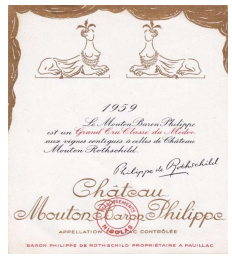 1959
Le Mouton Baron Philippe
est un Grand Cru Classé du Médoc
aux vignes contiguës à celles de Château
Mouton Rothschild.
Philippe de Rothschild
Château
Mouton Baron Philippe
APPELLATION CONTRÔLÉE
NICOLAS
BARON PHILIPPE DE ROTHSCHILD PROPRIÉTAIRE A PAUILLAC